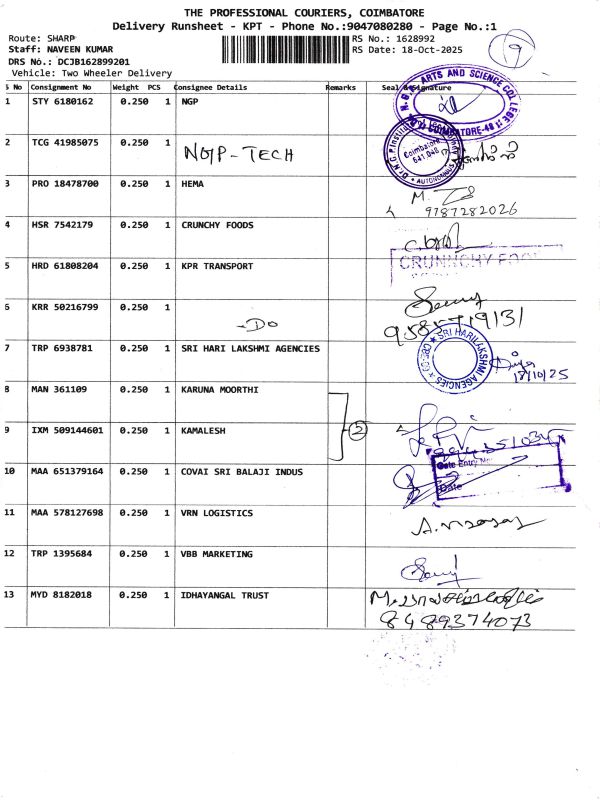 THE PROFESSIONAL COURIERS, COIMBATORE
Delivery Runsheet - KPT - Phone No.:9047080280 - Page No.:1
9
Route: SHARP
RS No.: 1628992
Staff: NAVEEN KUMAR
RS Date: 18-Oct-2025
DRS No.: DCJB162899201
Vehicle: Two Wheeler Delivery
S No Consignment No Weight PCS Consignee Details Remarks Seal & Signature
1 STY 6180162 0.250 1 NGP
ARTS AND SCIENCE COLLEGE
COIMBATORE-48
2 TCG 41985075 0.250 1 NGP-TECH
Coimbatore
641 048
AUTONOMOUS
3 PRO 18478700 0.250 1 HEMA
9787282026
4 HSR 7542179 0.250 1 CRUNCHY FOODS
CRUNNCHY
5 HRD 61808204 0.250 1 KPR TRANSPORT
6 KRR 50216799 0.250 1 -DO
7 TRP 6938781 0.250 1 SRI HARI LAKSHMI AGENCIES
SRI HARI LAKSHMI AGENCIES
18/10/25
8 MAN 361109 0.250 1 KARUNA MOORTHI
2
9 IXM 509144601 0.250 1 KAMALESH
Gate Entry No
Date
10 MAA 651379164 0.250 1 COVAI SRI BALAJI INDUS
11 MAA 578127698 0.250 1 VRN LOGISTICS
12 TRP 1395684 0.250 1 VBB MARKETING
13 MYD 8182018 0.250 1 IDHAYANGAL TRUST
8489374073